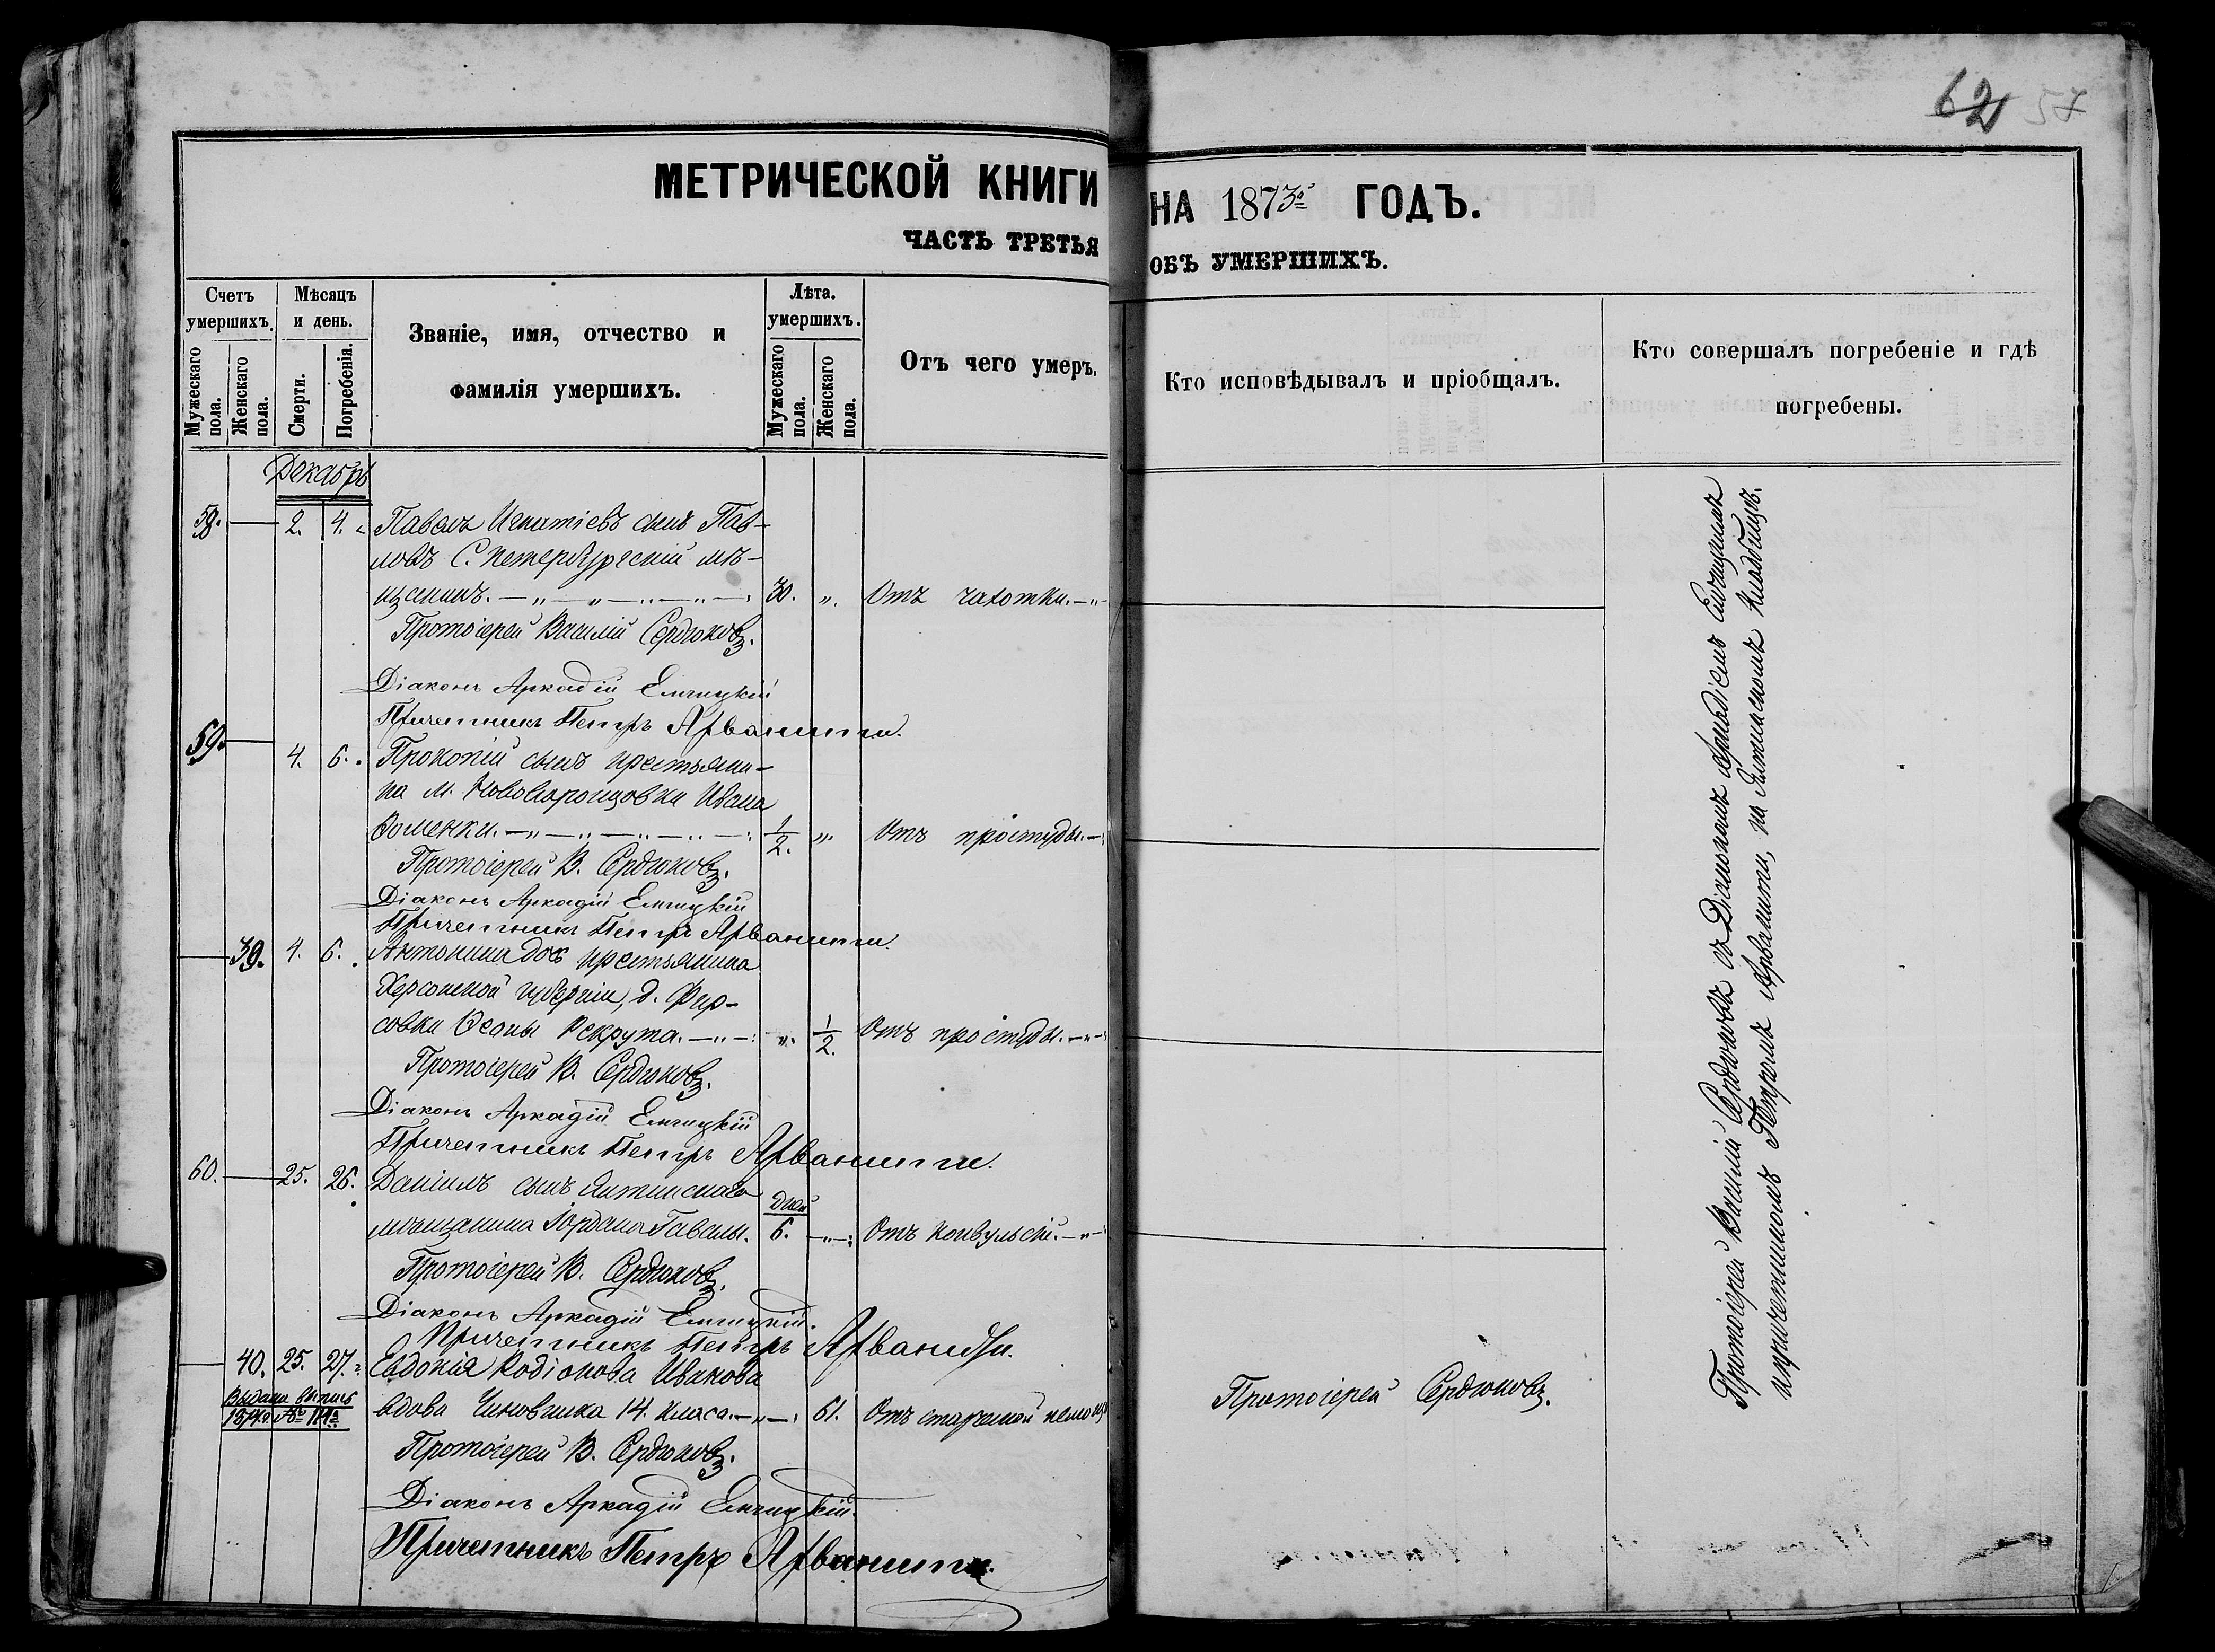 62 57
МЕТРИЧЕСКОЙ КНИГИ НА 1873й ГОДЪ.
ЧАСТЬ ТРЕТЬЯ ОБЪ УМЕРШИХЪ.
Счетъ умершихъ.
Мужескаго пола.
Женскаго пола.
Мѣсяцъ и день.
Смерти.
Погребенія.
Званіе, имя, отчество и
фамилія умершихъ.
Лѣта.
умершихъ.
Мужескаго пола.
Женскаго пола.
Отъ чего умеръ.
Кто исповѣдывалъ и пріобщалъ.
Кто совершалъ погребеніе и гдѣ
погребены.
Декабрь
58. 2. 4. Павелъ Игнатіевъ сынъ Пав-
ловъ С. Петербургскій мѣ-
щанинъ. 30. „ Отъ чахотки.
Протоіерей Василій Сердюковъ.
Діаконъ Аркадій Енчицкій
Причетникъ Петръ Арванити.
59. 4. 6. Прокопій сынъ крестьяни-
на м. Нововоронцовки Ивана
Фоменки. 1/2. „ Отъ простуды.
Протоіерей В. Сердюковъ.
Діаконъ Аркадій Енчицкій
Причетникъ Петръ Арванити.
39. 4. 6. Антонина дочь крестьянина
Херсонской губерніи, д. Фир-
совки Осипы Рекрута. „ 1/2. Отъ простуды.
Протоіерей В. Сердюковъ.
Діаконъ Аркадій Енчицкій
Причетникъ Петръ Арванити.
60. 25. 26. Даніилъ сынъ Ялтинскаго
мѣщанина Іордана Гаваны. дней 6. Отъ конвульсій.
Протоіерей В. Сердюковъ.
Діаконъ Аркадій Енчицкій.
Причетникъ Петръ Арванити.
40. 25. 27. Евдокія Родіонова Иванова
Выдана выпись
1874 г. № 114й
вдова Чиновника 14. класа. 61. Отъ старческой немощи
Протоіерей Сердюковъ.
Протоіерей В. Сердюковъ.
Діаконъ Аркадій Енчицкій.
Причетникъ Петръ Арванити.
Протоіерей Василій Сердюковъ съ Діакономъ Аркадіемъ Енчицкимъ
и причетникомъ Петромъ Арванити, на Ялтинскомъ кладбищѣ.